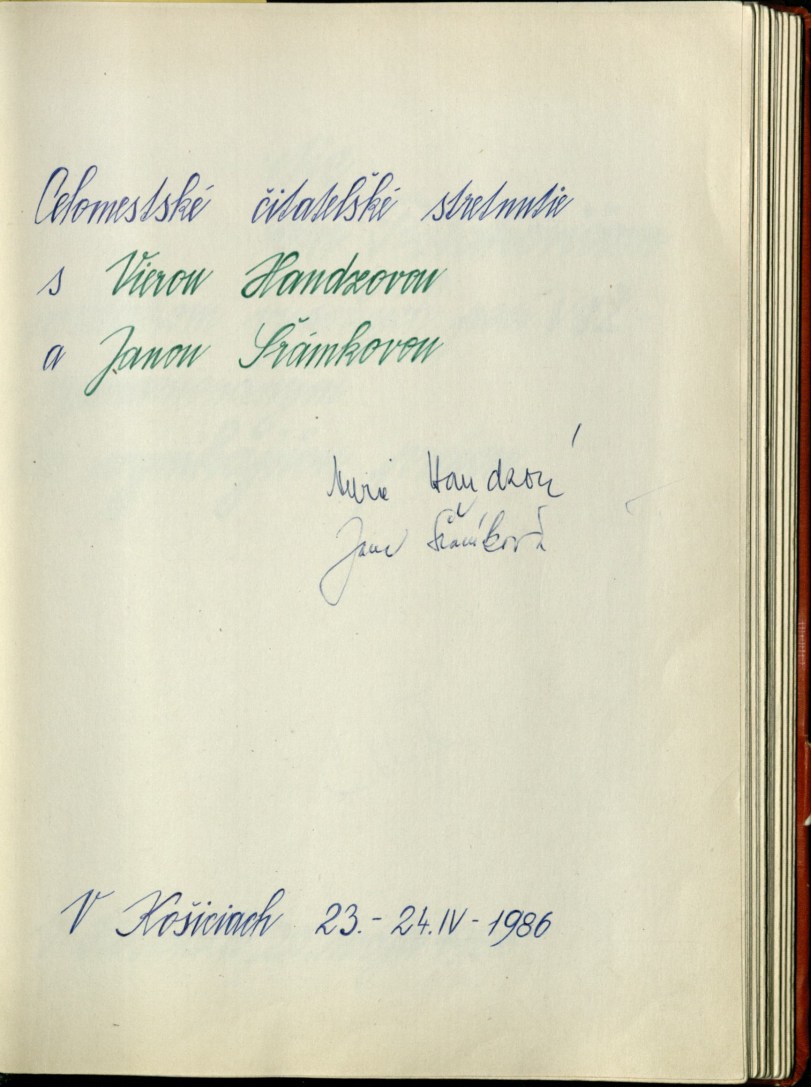 Celomestské čitateľské stretnutie
s Vierou Handzovou
a Janou Šrámkovou
Viera Handzová
Jana Šrámková
V Košiciach 23.-24.IV-1986